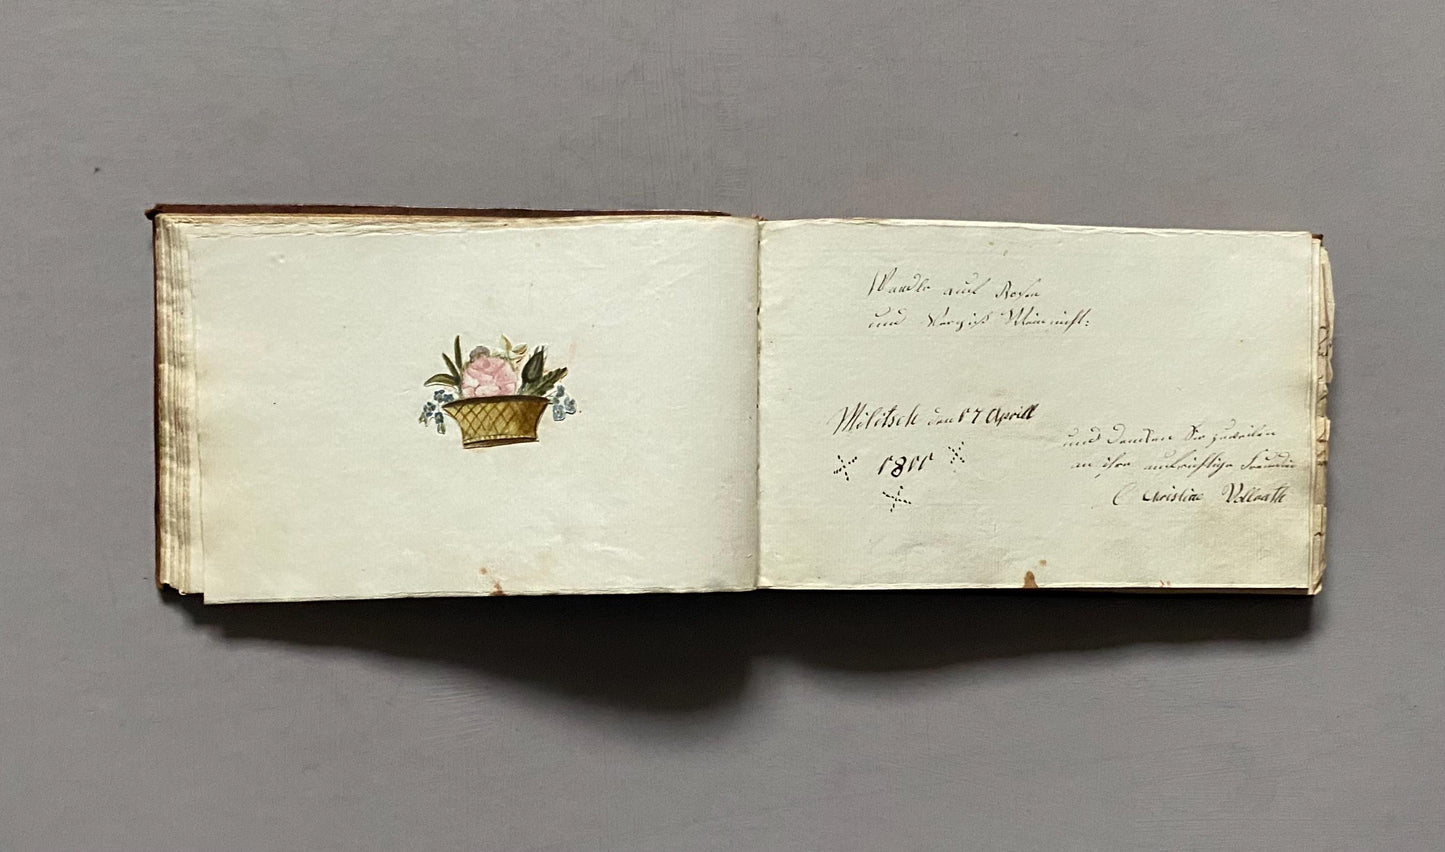 Wandle auf Rosen
und Vergiß Mein nicht:
Militsch den 17 Aprill
1811
und denken Sie zuweilen
an ihre aufrichtige Freundin
C Christine Vollrath